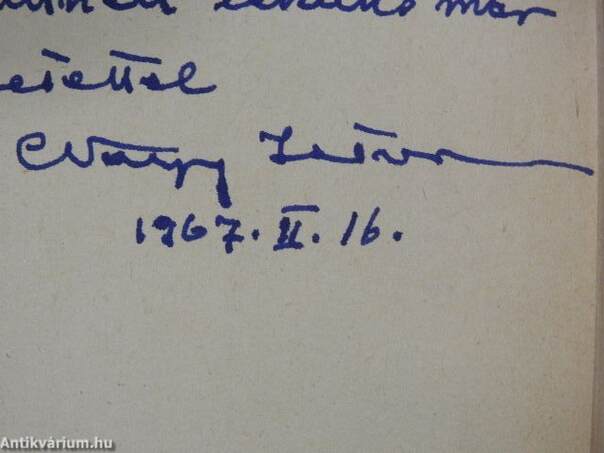 már
etettel
Nagy István
1967. II. 16.
Antikvárium.hu